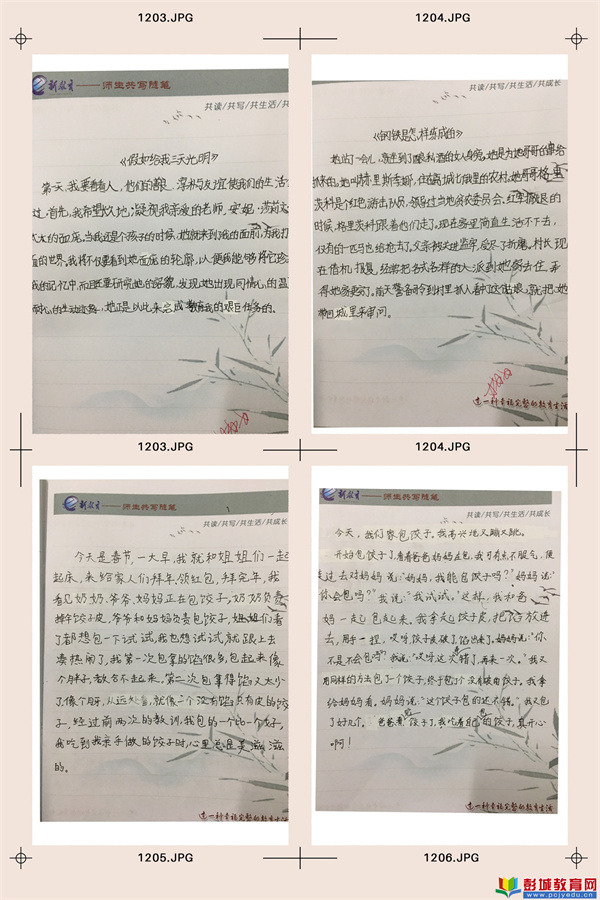 1203.JPG
1204.JPG
新教育——师生共写随笔
共读/共写/共生活/共
《假如给我三天光明》
第一天,我要看看人,他们的善
过。首先,我希望久地凝视我亲爱的老师,安妮·莎莉文
太太的面庞。当我还是个孩子的时候,她就来到我的面前,为我打
面的世界。我将不仅要看到她面庞的轮廓,以便我能够将它珍
我的记忆中,而且要研究她的容貌,发现她出现同情心的温
耐心的生动迹象,她正是以此来完成教育我的艰巨任务的。
共读/共写/共生活/共成长
《钢铁是怎样炼成的》
她站了一会儿
时候,格里茨科跟着他们走了。现在家里简直生活不下去,
仅有的一匹马也给抢去了。父亲被关进监牢,受尽了折磨。村长现
在借机报复,经常把各式各样的人派到她家去住,弄
得她家更穷了。前天警备司令到村里抓人看中了这个姑娘,就把她
带回城里来审问。
过一种幸福完整的教育生活
1203.JPG
1204.JPG
新教育——师生共写随笔
共读/共写/共生活/共成长
今天是春节,一大早,我就和姐姐们一起
起床,来给家人们拜年、领红包,拜完年,我
看见奶奶、爷爷、妈妈正在包饺子,奶奶负责
擀饺子皮,爷爷和妈妈负责包饺子,姐姐们看
了都想包一下试试,我也想试试,就跟上去
凑热闹了,我第一次包拿的馅很多,包起来像
个胖子,
了,像个月牙,从远处看,就像一个没有馅只有皮的饺
子,经过前两次的教训,我包的一个比一个好,
我吃到我亲手做的饺子时,心里总是美滋滋
的。
过一种幸福完整的教育生活
新教育——师生共写随笔
共读/共写/共生活/共成长
今天,我们家包饺子。我高兴地又蹦又跳。
开始包饺子了,看着爸爸妈妈在包,我可有点不服气,便
走过去对妈妈说:“妈妈,我能包饺子吗?”妈妈说:“
你会包吗?”我说:“我试试。”这样,我和爸
妈一起包起来,我拿起饺子皮,把馅放进
去,用手一捏,哎呀,饺子皮破了,馅出来了。妈妈说:“你
不是不会包吗?”我说:“哎呀这次错了,再来一次。”我又
用同样的方法包了一个饺子,终于包了个没有破的饺子。我拿
给妈妈看。妈妈说:“这个饺子包的还不错。”我又包
了好几个。爸爸煮饺子了,我吃着自己包的饺子,真开心
啊!
过一种幸福完整的教育生活
1205.JPG
1206.JPG
彭城教育网
www.pcjyedu.cn